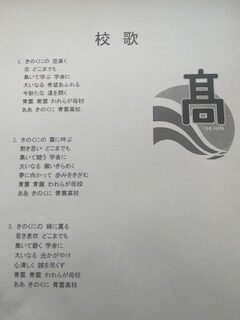 校歌
1. きのくにの 空高く
志 どこまでも
集いて学ぶ 学舎に
大いなる 希望あふれる
今新たな 道を開く
青雲 青雲 われらが母校
ああ きのくに 青雲高校
2. きのくにの 麗に呼ぶ
熱き思い どこまでも
集いて競う 学舎に
大いなる 願いきらめく
夢に向かって 歩みをきざむ
青雲 青雲 われらが母校
ああ きのくに 青雲高校
3. きのくにの 緑に薫る
若き息吹 どこまでも
集いて磨く 学舎に
大いなる 光かがやけ
心清しく 誠を尽くす
青雲 青雲 われらが母校
ああ きのくに 青雲高校
高
SEIUN